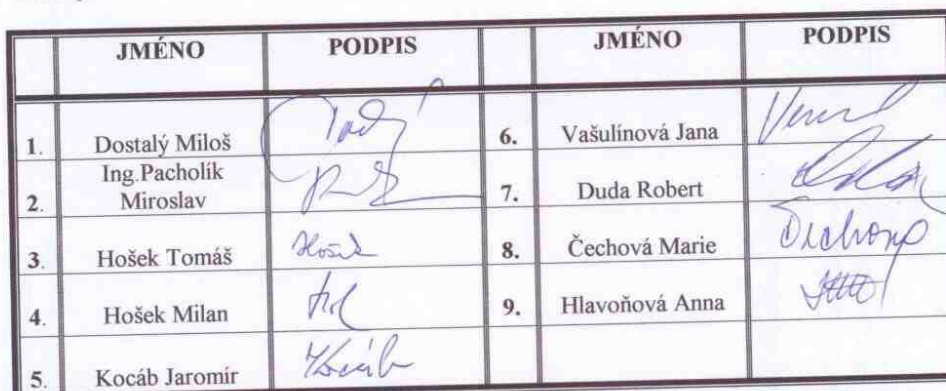 JMÉNO PODPIS JMÉNO PODPIS
1. Dostalý Miloš 6. Vašulínová Jana
Ing.Pacholík
2. Miroslav 7. Duda Robert
3. Hošek Tomáš Hošek 8. Čechová Marie
4. Hošek Milan 9. Hlavoňová Anna
5. Kocáb Jaromír Kocáb